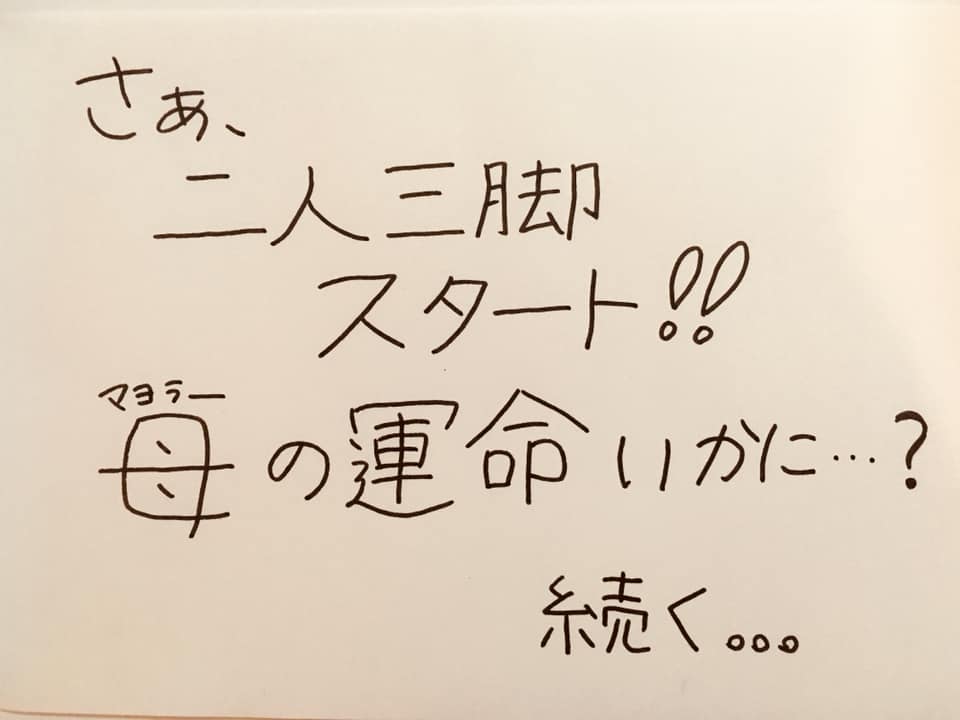 さぁ、
二人三脚
スタート!!
マヨラー
母の運命いかに…?
続く...